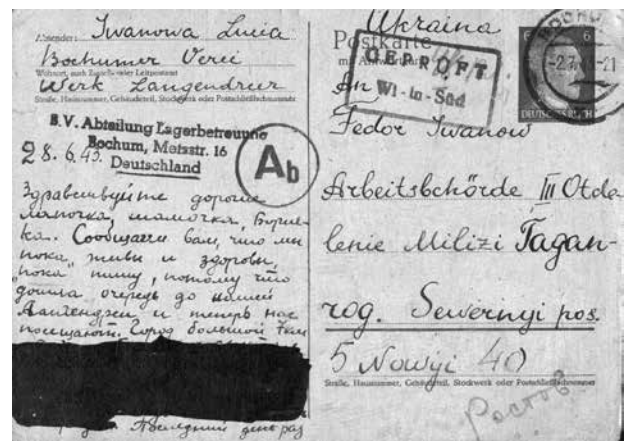 Absender: Iwanowa Lucia
Bochumer Verei
Wohnort, auch Zustell- oder Leitpostamt
Werk Langendreer
Straße, Hausnummer, Gebäudeteil, Stockwerk oder Postschließfachnummer
B.V. Abteilung Lagerbetreuung
Bochum, Metzstr. 16
Deutschland
28. 6. 43.
Ab
Здравствуйте дорогие
папочка, мамочка, Бориль-
ка. Сообщаем вам, что мы
пока „живы и здоровы,
„пока" пишу, потому что
дошла очередь до нашей
и теперь нас
посещают. Город большой
последний день раз
Ukraina
Postkarte
mit Antwortkarte
GEPRÜFT
Wi-in-Süd
6 6
DEUTSCHES REICH
BOCHUM
-2.7. -21
An
Fedor Iwanow
Arbeitsbehörde III Otde
lenie Milizi Tagan-
rog. Sewernyi pos.
5 Nowyi 40
Straße, Hausnummer, Gebäudeteil, Stockwerk oder Postschließfachnummer
Ростов